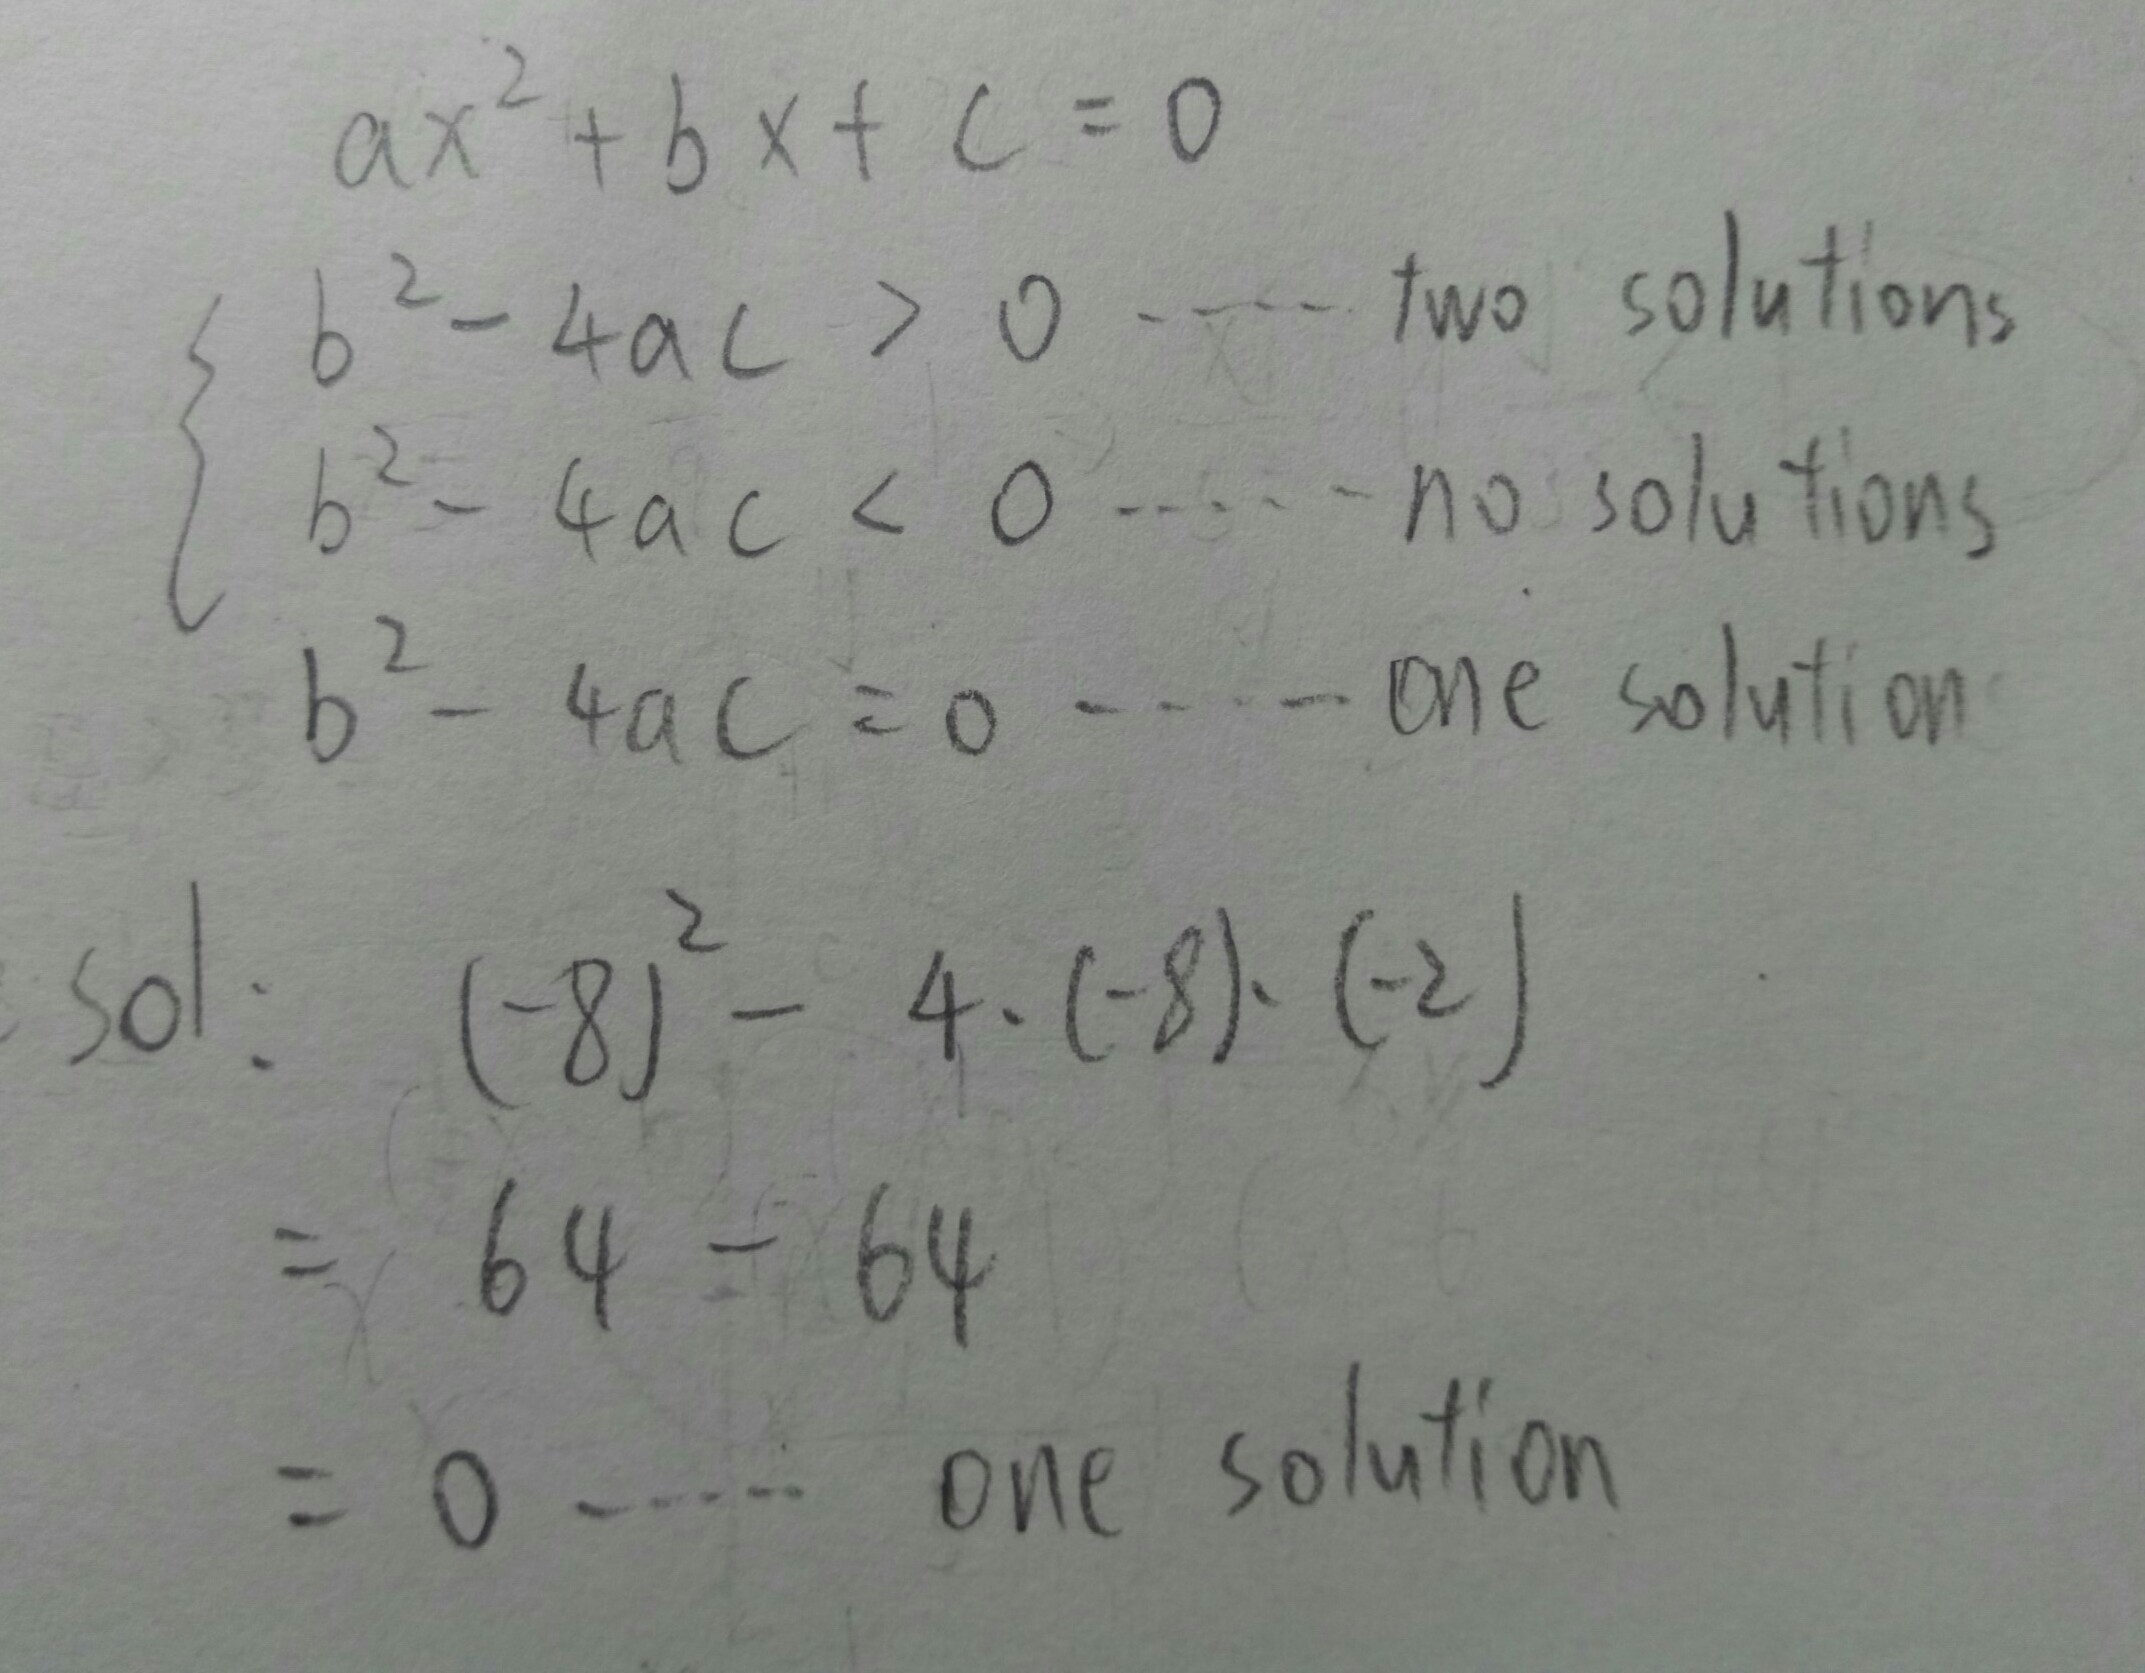 ax² + bx + c = 0
b² - 4ac > 0 ------ two solutions
b² - 4ac < 0 ------ no solutions
b² - 4ac = 0 ------ one solution
sol: (-8)² - 4·(-8)·(-2)
= 64 - 64
= 0 ------ one solution